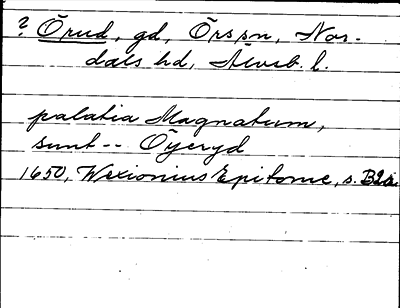 ? Örud, gd, Örs sn, Nor-
dals hd, Älvsb. l.
palatia Magnatum,
sunt -- Öÿeryd
1650, Wexionius Epitome, s. B2a.